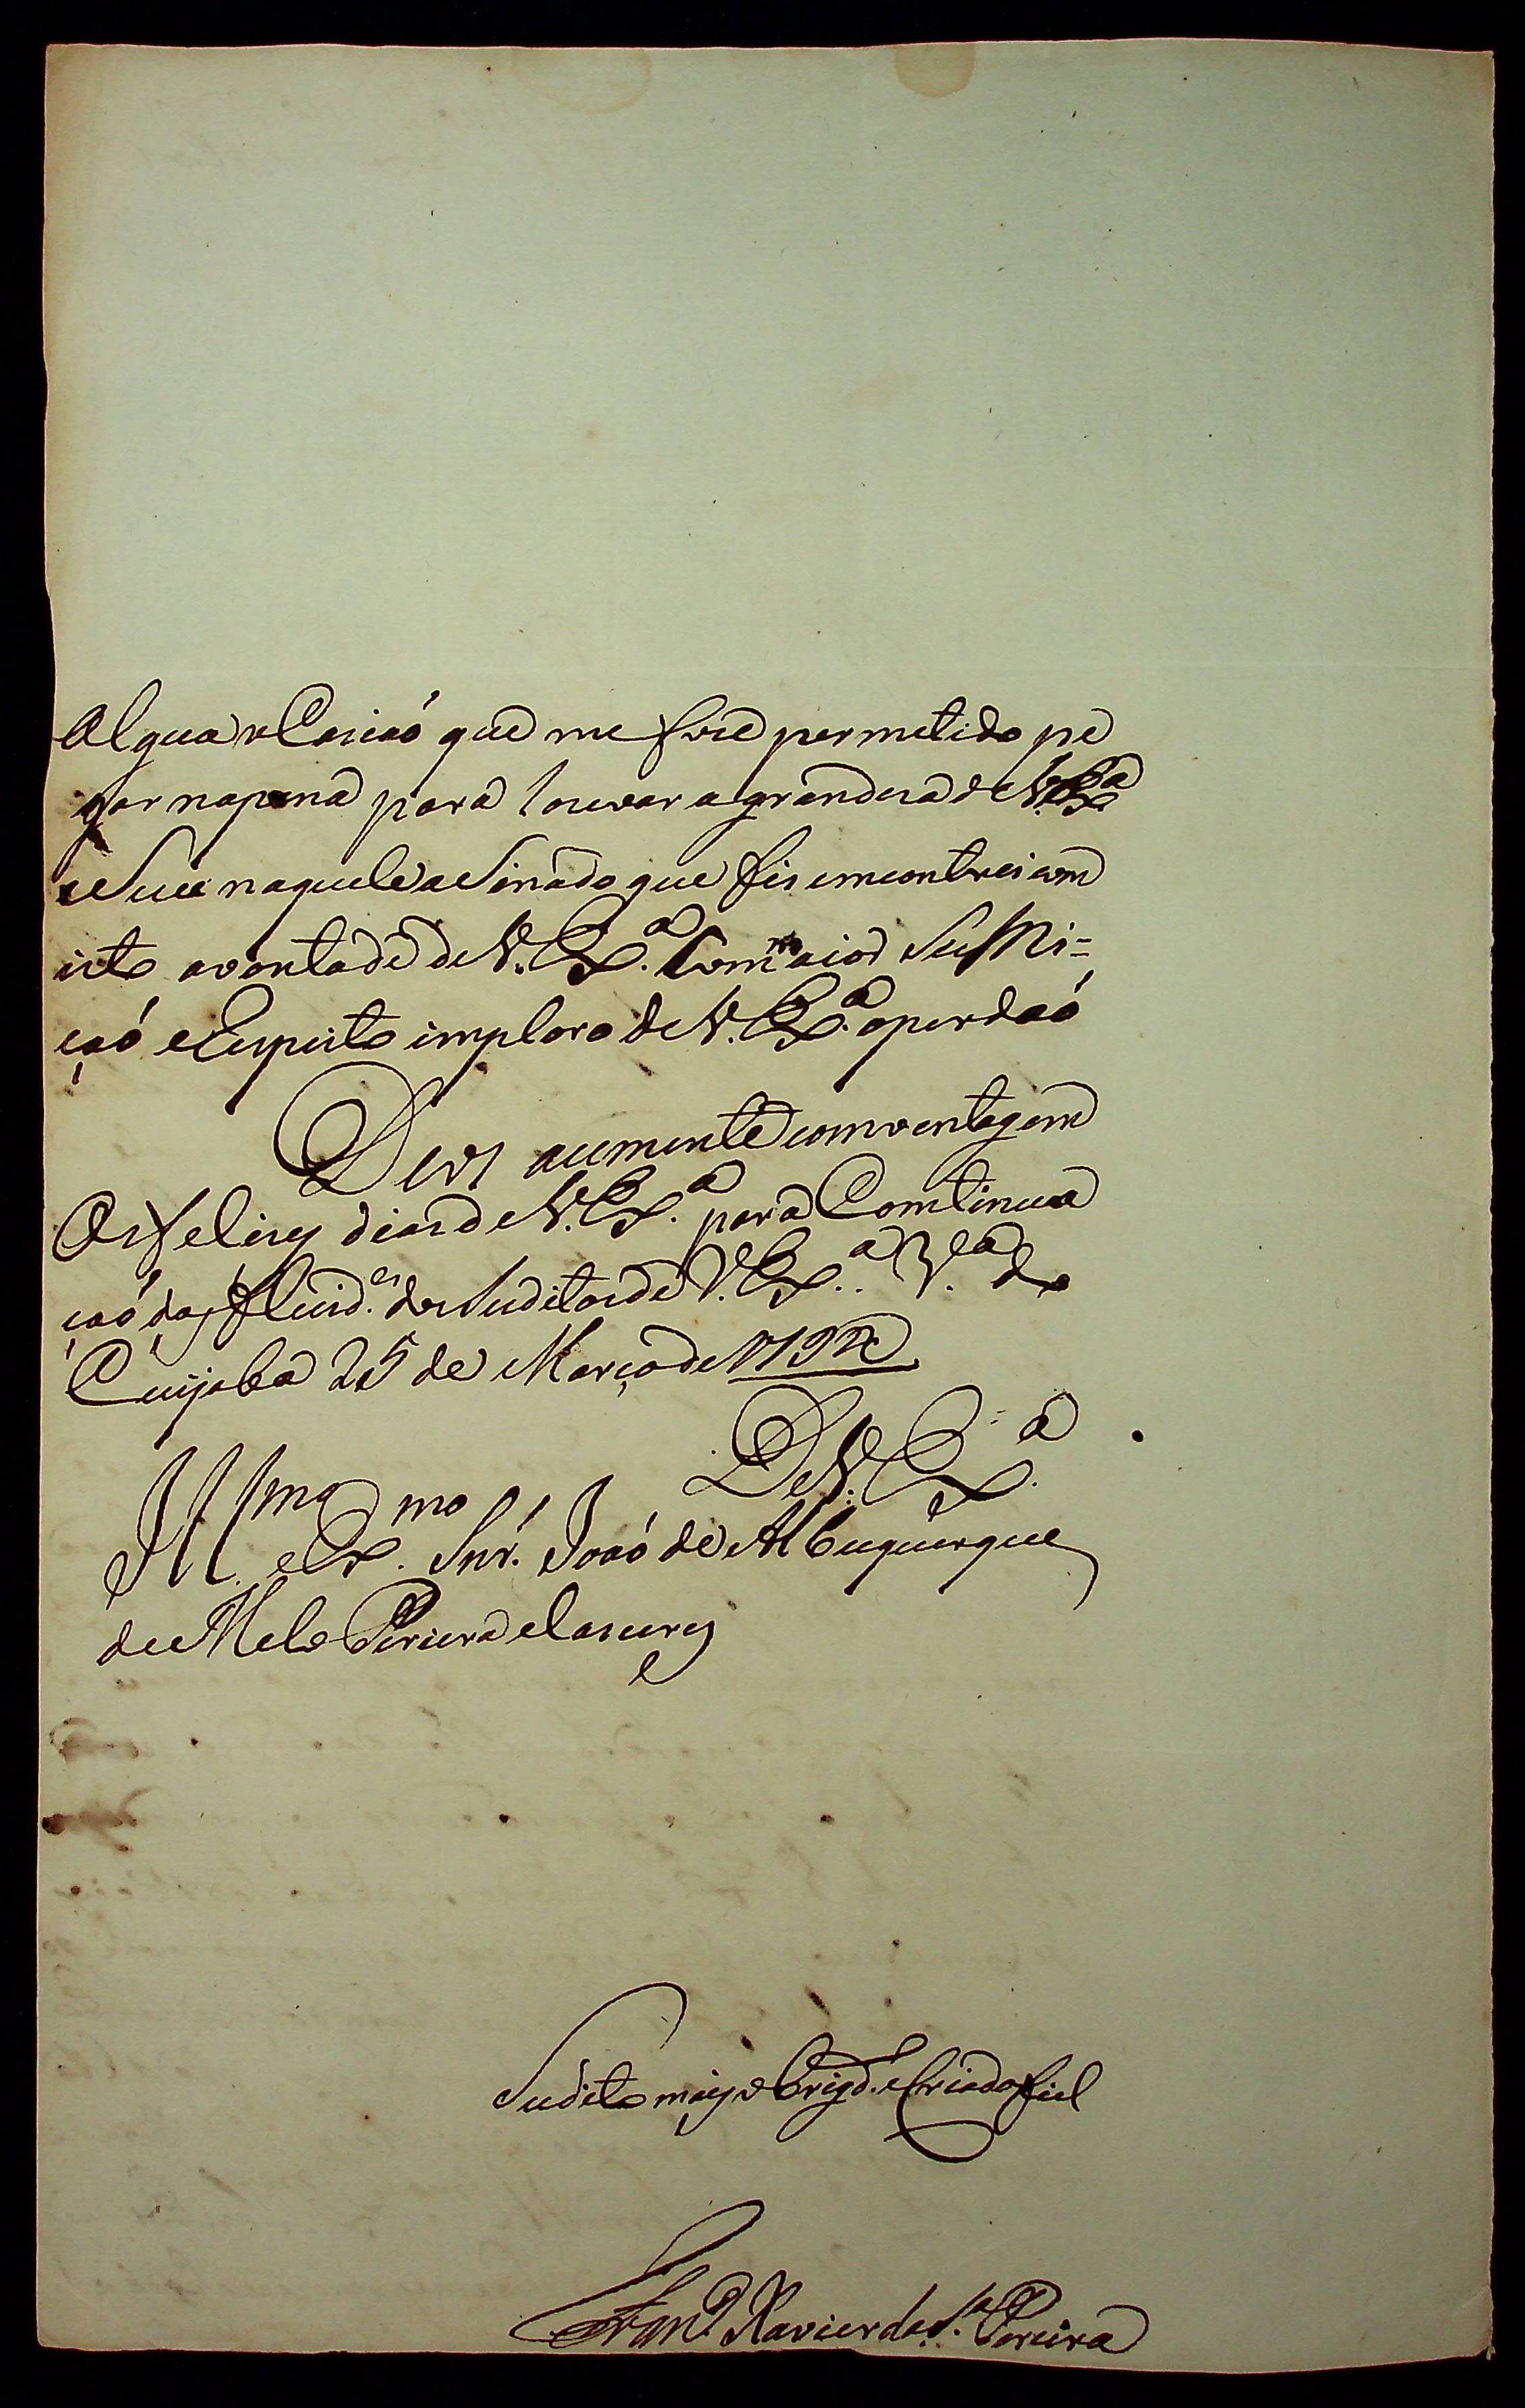 Algua occasiaó que me fose permetido pe
gar napena para louvar a grandesa de V. Exª
e Seu naquele aSinado que fis emcontrei com
isto avontade de V. Exª. Com maior SuMi=
çaó eRespeito imploro de V. Exª. operdaó
Deos aumente comventagem
Os felisej dias de V. Exª. para Comtinua
çaó das flicid.es dos Suditos de V. Exª. V.ª do
Cuijaba 25 de Março de
De V. Exª.
Ill.mo e Ex.mo Snr. Joaó de Albuquerque
de Melo Pereira e Caseres
Sudito maiz obrigd.o e Criado fiel
Fran.co Xavier da S.ª Pereira